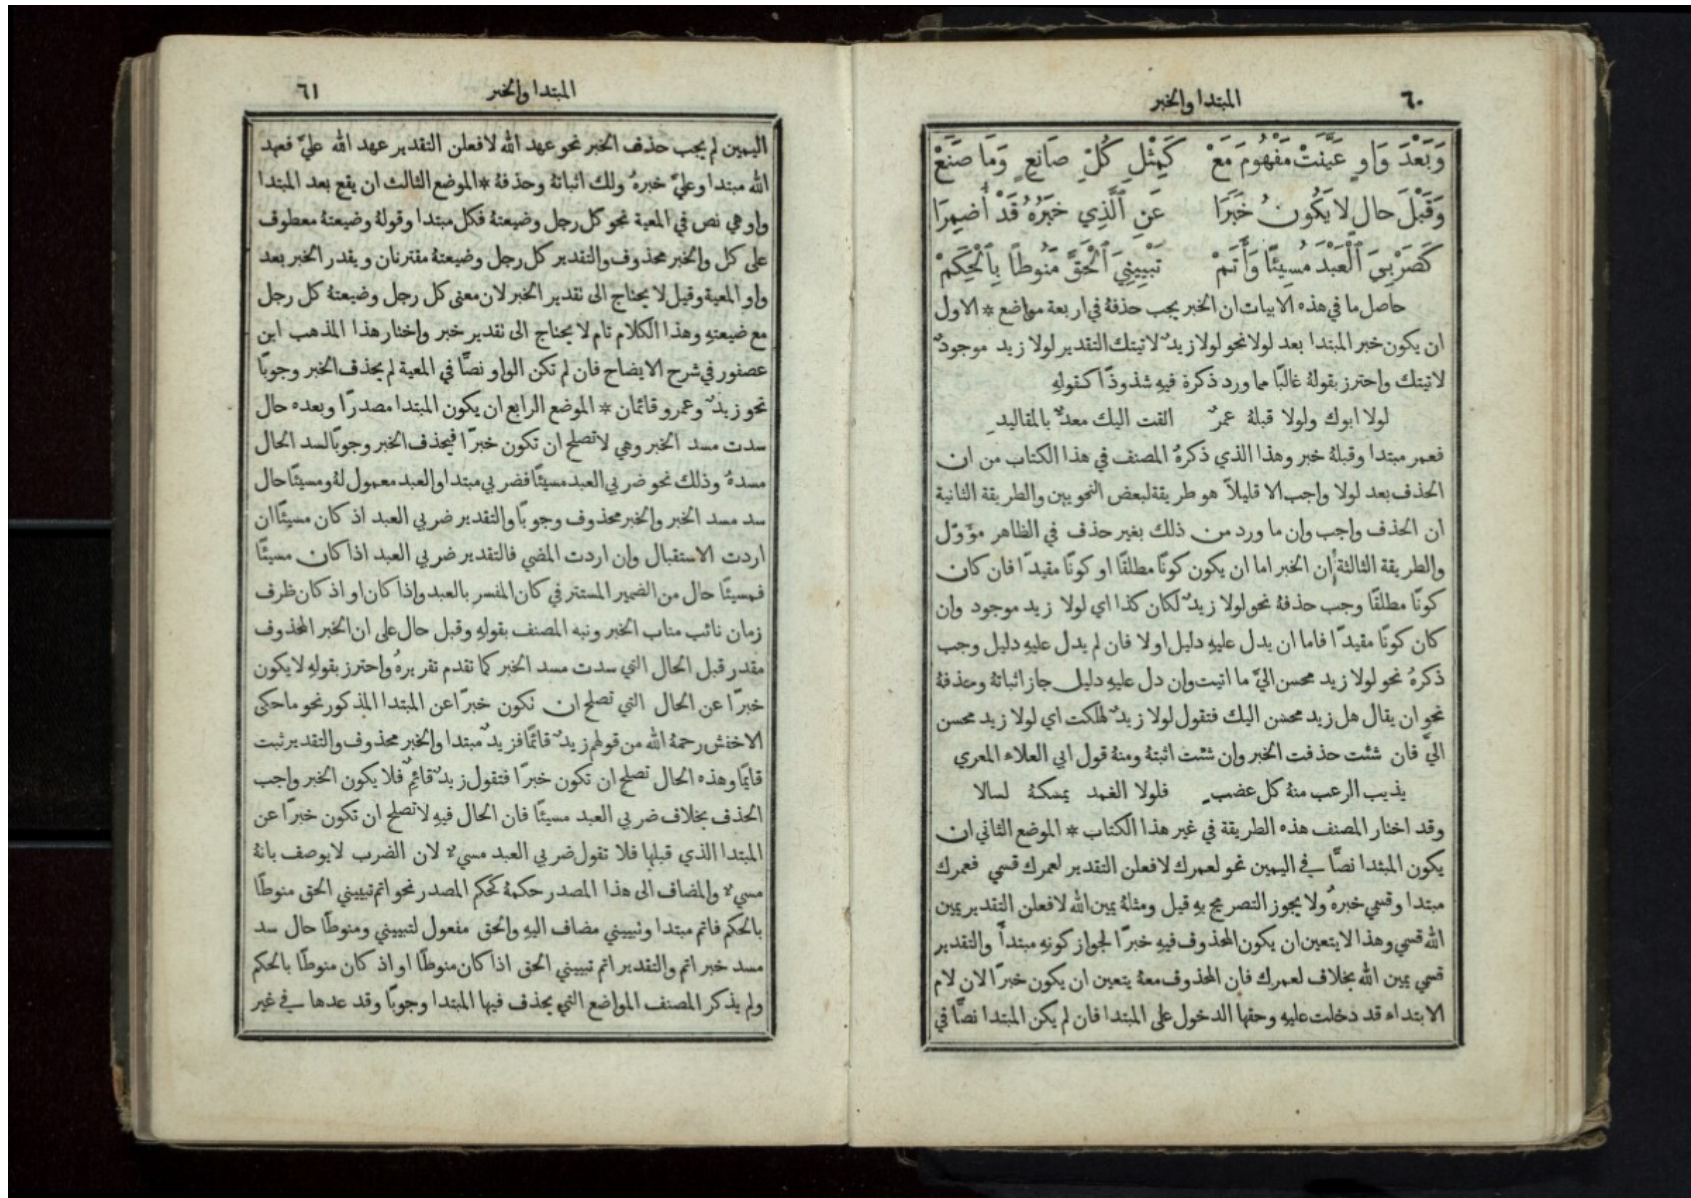 ٦٠ المبتدا والخبر
وَبَعْدَ وَاوٍ عَيَّنَتْ مَفْهُومَ مَعْ كَمِثْلِ كُلّ صَانِعٍ وَمَا صَنَعْ
وَقَبْلَ حَالٍ لاَ يَكُونُ خَبَرَا عَنِ ٱلَّذِي خَبَرُهُ قَدْ أُضْمِرَا
كَضَرْبِيَ ٱلْعَبْدَ مُسِيئًا وَأَتَمْ تَبْيِينِيَ ٱلْحَقَّ مَنُوطًا بِٱلْحِكَمْ
حاصل ما في هذه الابيات ان الخبر يجب حذفهُ في اربعة مواضع * الاول
ان يكون خبر المبتدا بعد لولا نحو لولا زيدٌ لاتيتك التقدير لولا زيد موجودٌ
لاتيتك واحترز بقولهُ غالبًا مما ورد ذكرة فيهِ شذوذًا كقولهِ
لولا ابوك ولولا قبلهُ عمرٌ القت اليك معدٌّ بالمقاليدِ
فعمر مبتدا وقبلهُ خبر وهذا الذي ذكرهُ المصنف في هذا الكتاب من ان
الحذف بعد لولا واجب الا قليلاً هو طريقة لبعض النحويين والطريقة الثانية
ان الحذف واجب وإن ما ورد من ذلك بغير حذف في الظاهر مؤوّل
والطريقة الثالثة إن الخبر اما ان يكون كونًا مطلقًا او كونًا مقيدًا فان كان
كونًا مطلقًا وجب حذفهُ نحو لولا زيدٌ لكان كذا اي لولا زيد موجود وإن
كان كونًا مقيدًا فاما ان يدل عليهِ دليل اولا فان لم يدل عليهِ دليل وجب
ذكرهُ نحو لولا زيد محسن اليَّ ما اتيت وإن دل عليهِ دليل جاز اثباتهُ وحذفهُ
نحو ان يقال هل زيد محسن اليك فتقول لولا زيدٌ لهلكت اي لولا زيد محسن
اليَّ فان شئت حذفت الخبر وإن شئت اثبتهُ ومنهُ قول ابي العلاء المعري
يذيب الرعب منهُ كل عضبٍ فلولا الغمد يمسكهُ لسالا
وقد اختار المصنف هذه الطريقة في غير هذا الكتاب * الموضع الثاني ان
يكون المبتدا نصًّا في اليمين نحو لعمرك لافعلن التقدير لعمرك قسمي فعمرك
مبتدا وقسمي خبرهُ ولا يجوز التصريح بهِ قيل ومثلهُ يمين الله لافعلن التقدير يمين
الله قسمي وهذا لا يتعين ان يكون المحذوف فيهِ خبرًا لجواز كونهِ مبتدأً والتقدير
قسمي يمين الله بخلاف لعمرك فان المحذوف معهُ يتعين ان يكون خبرًا لان لام
الابتداء قد دخلت عليهِ وحقها الدخول على المبتدا فان لم يكن المبتدا نصًّا في
المبتدا والخبر ٦١
اليمين لم يجب حذف الخبر نحو عهد الله لافعلن التقدير عهد الله عليَّ فعهد
الله مبتدا وعليَّ خبرهُ ولك اثباتهُ وحذفهُ * الموضع الثالث ان يقع بعد المبتدا
واو هي نص في المعية نحو كل رجل وضيعتهُ فكل مبتدا وقولهُ وضيعتهُ معطوف
على كل والخبر محذوف والتقدير كل رجل وضيعتهُ مقترنان ويقدر الخبر بعد
واو المعية وقيل لا يحتاج الى تقدير الخبر لان معنى كل رجل وضيعتهُ كل رجل
مع ضيعتهِ وهذا الكلام تام لا يحتاج الى تقدير خبر واختار هذا المذهب ابن
عصفور في شرح الايضاح فان لم تكن الواو نصًّا في المعية لم يحذف الخبر وجوبًا
نحو زيدٌ وعمرو قائمان * الموضع الرابع ان يكون المبتدا مصدرًا وبعده حال
سدت مسد الخبر وهي لا تصلح ان تكون خبرًا فيحذف الخبر وجوبًا لسد الحال
مسدهُ وذلك نحو ضربي العبد مسيئًا فضربي مبتدا والعبد معمول لهُ ومسيئًا حال
سد مسد الخبر والخبر محذوف وجوبًا والتقدير ضربي العبد اذ كان مسيئًا ان
اردت الاستقبال وإن اردت المضي فالتقدير ضربي العبد اذا كان مسيئًا
فمسيئًا حال من الضمير المستتر في كان المفسر بالعبد وإذا كان او اذ كان ظرف
زمان نائب مناب الخبر ونبه المصنف بقولهِ وقبل حال على ان الخبر المحذوف
مقدر قبل الحال التي سدت مسد الخبر كما تقدم تقريرهُ واحترز بقولهِ لا يكون
خبرًا عن الحال التي تصلح ان تكون خبرًا عن المبتدا المذكور نحو ما حكى
الاخفش رحمهُ الله من قولهم زيدٌ قائمًا فزيدٌ مبتدا والخبر محذوف والتقدير ثبت
قائمًا وهذه الحال تصلح ان تكون خبرًا فتقول زيدٌ قائمٌ فلا يكون الخبر واجب
الحذف بخلاف ضربي العبد مسيئًا فان الحال فيهِ لا تصلح ان تكون خبرًا عن
المبتدا الذي قبلها فلا تقول ضربي العبد مسيءٌ لان الضرب لا يوصف بانهُ
مسيءٌ والمضاف الى هذا المصدر حكمهُ كحكم المصدر نحو اتم تبييني الحق منوطًا
بالحكم فاتم مبتدا وتبييني مضاف اليهِ والحق مفعول لتبييني ومنوطًا حال سد
مسد خبر اتم والتقدير اتم تبييني الحق اذا كان منوطًا او اذ كان منوطًا بالحكم
ولم يذكر المصنف المواضع التي يحذف فيها المبتدا وجوبًا وقد عدها في غير